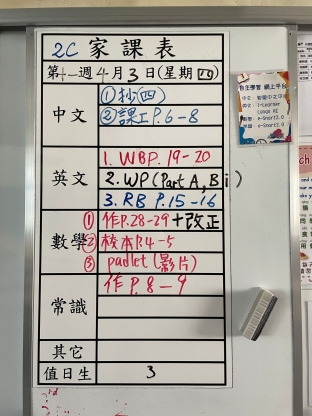 2C 家課表
第十一週4月3日(星期四)
中文
①抄(四)
②課工P.6-8
英文
1. WBP. 19-20
2. WP (Part A, B i)
3. RB P.15-16
數學
①作P.28-29+改正
②校本P.4-5
③padlet(影片)
常識
作P.8-9
其它
值日生 3
自主學習 網上平台